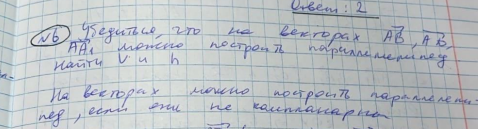 Ответ: 2
№6 Убедиться, что на векторах AB, AD,
AA₁ можно построить параллелепипед
Найти V и h
На векторах можно построить параллелепи-
пед, если они не компланарны